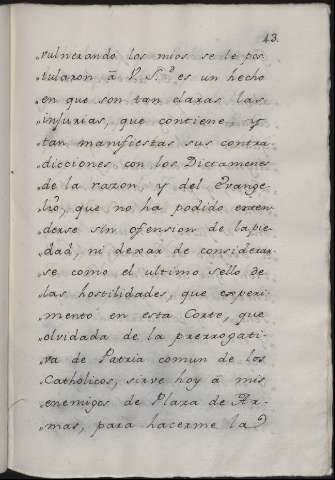 43.
„vulnerando los mios se le pos
„tularon á V. S.ª es un hecho
„en que son tan claras las
„injurias, que contiene, y
„tan manifiestas sus contra
„dicciones con los Dictamenes
„de la razon, y del Evange-
„lio, que no ha podido enten
„derse sin ofension de la pie
„dad, ni dexar de considerar
„se como el ultimo sello de
„las hostilidades, que experi
„mento en esta Corte, que
„olvidada de la prerrogati-
„va de Patria comun de los
„Catholicos, sirve hoy á mis
„enemigos de Plaza de Ar-
„mas, para hacerme la